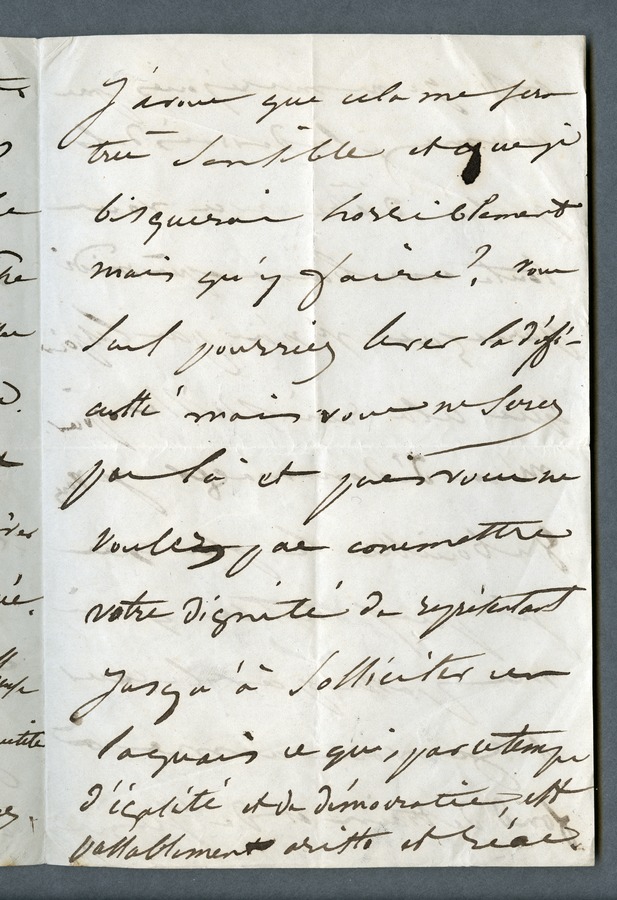 J'avoue que cela me sera
très sensible et que je
bisquerai horriblement
mais qu'y faire? vous
seul pourriez lever la diffi-
culté mais vous ne serez
pas là et puis vous ne
voulez pas commettre
votre dignité de représentant
jusqu'à solliciter un
laquais ce qui, par ce temps
d'égalité et de démocratie, est
passablement aristo et réac.